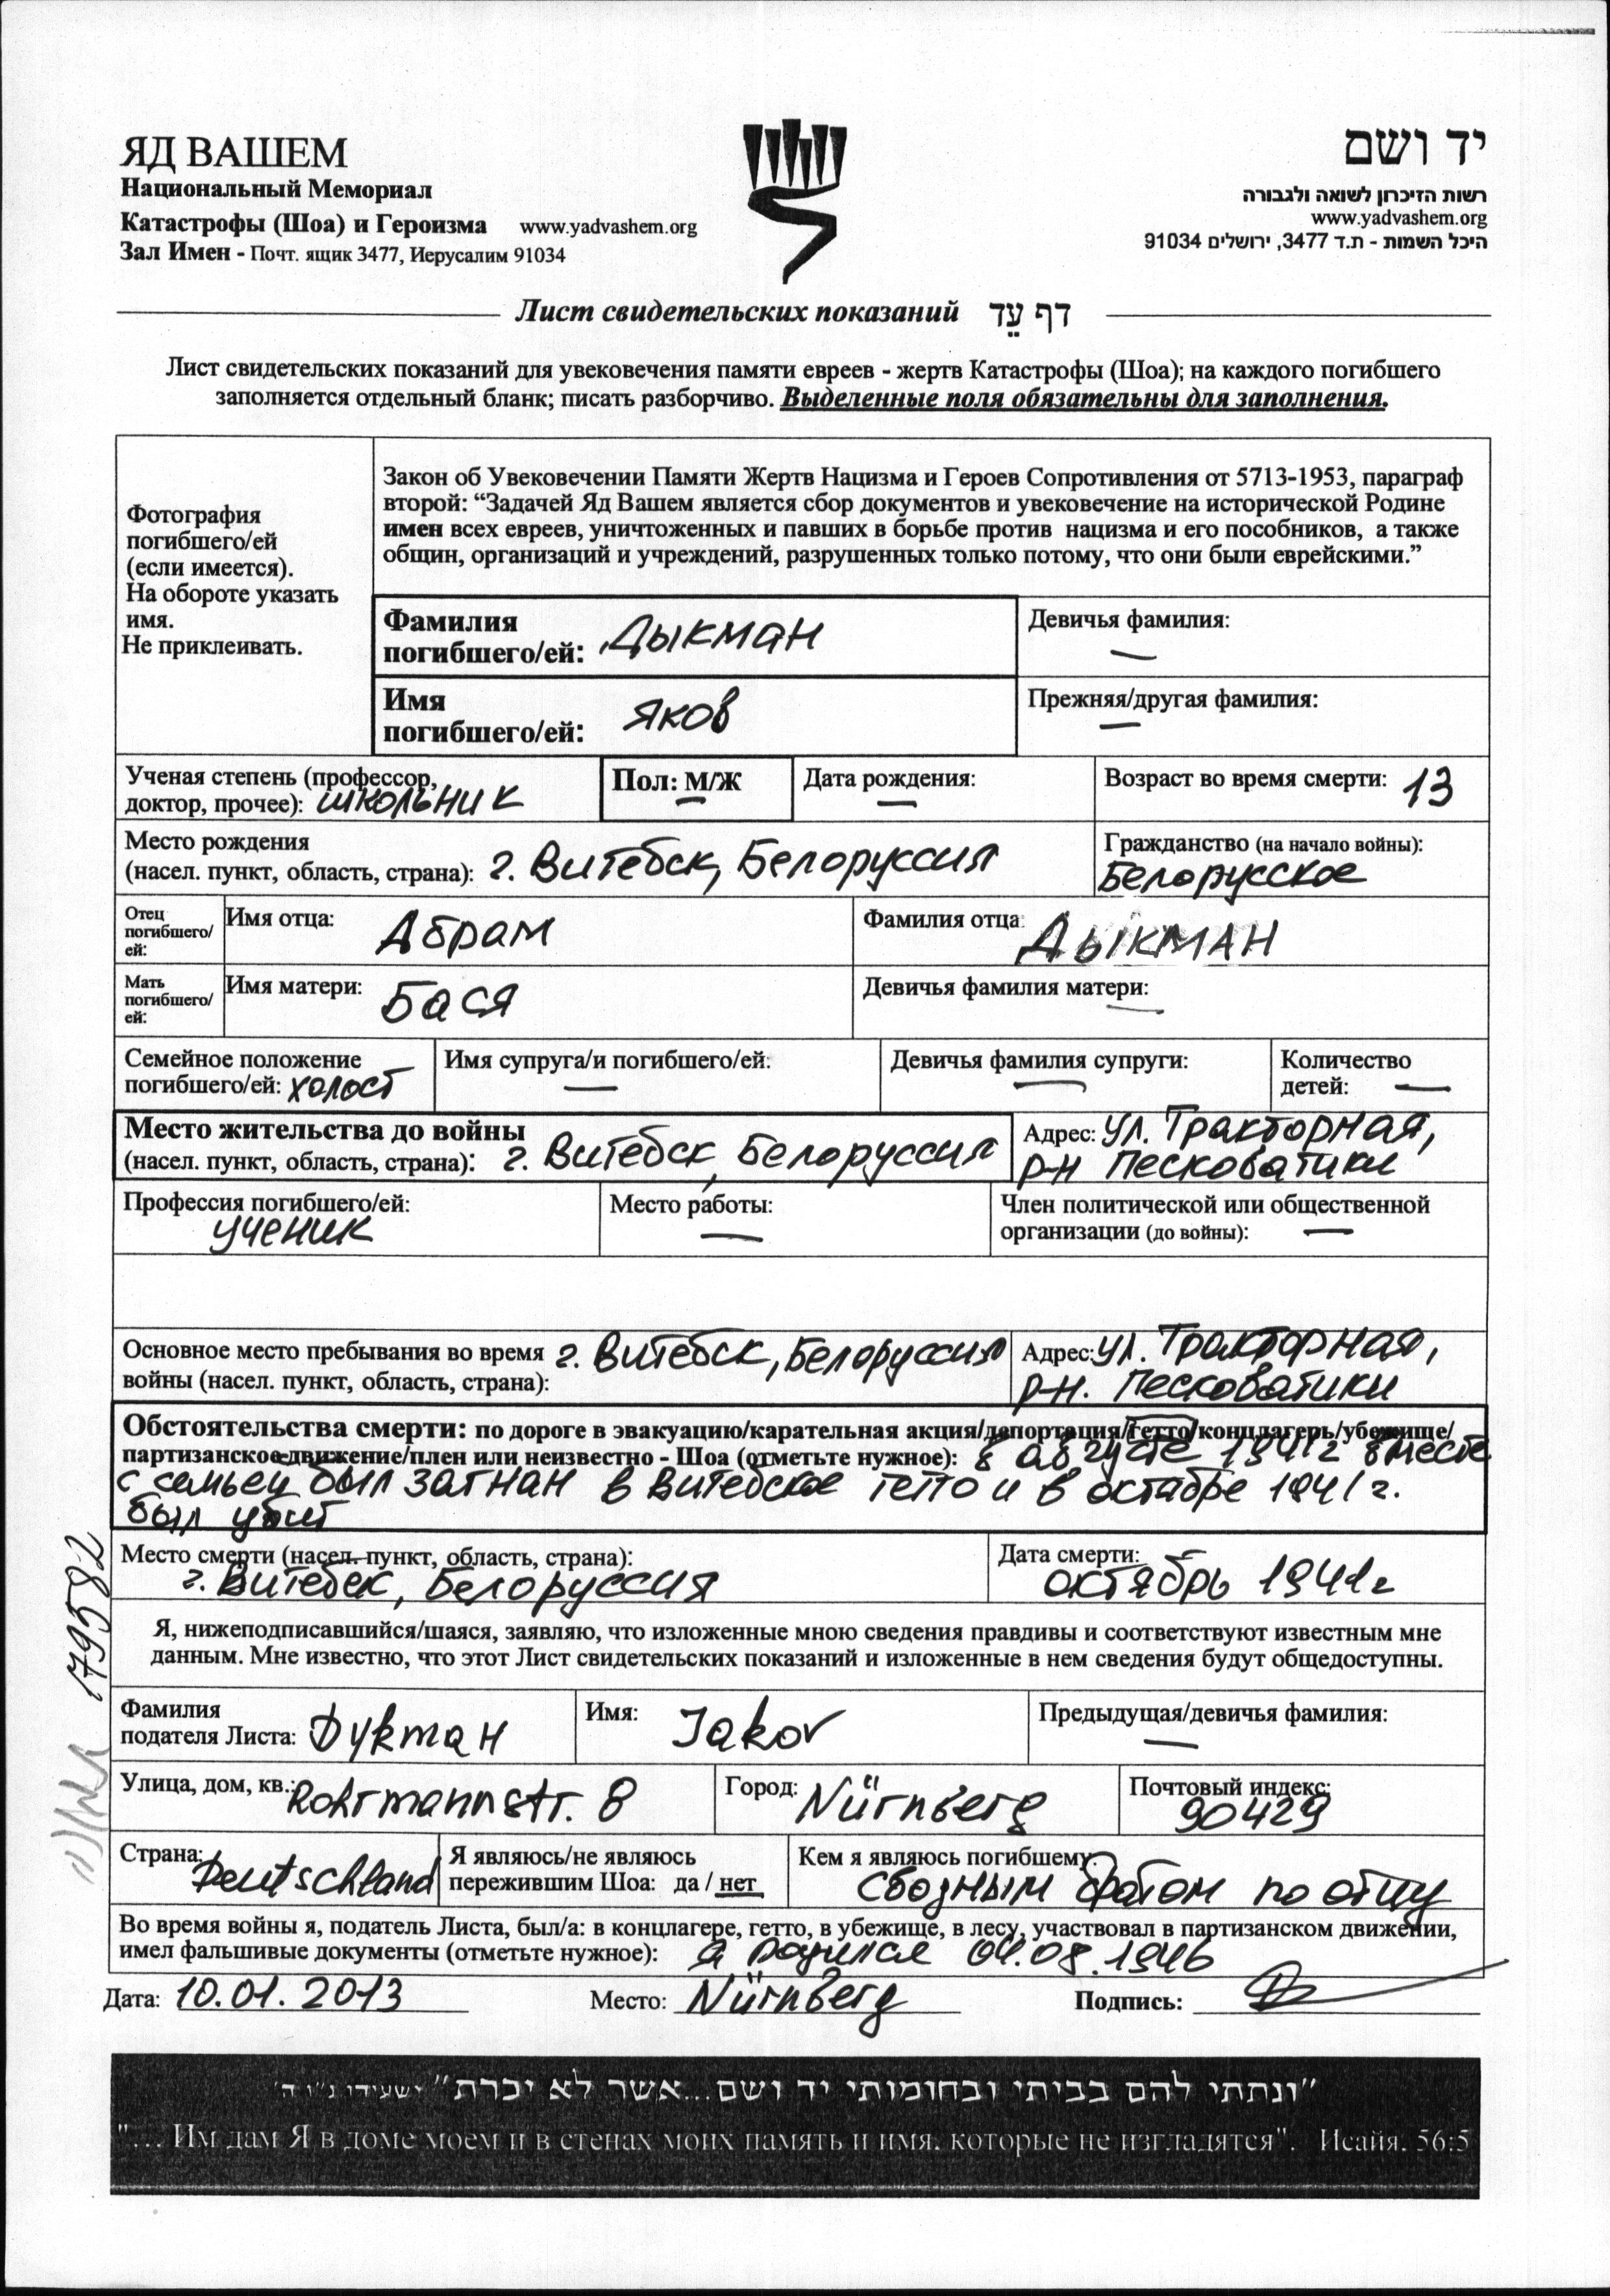 ЯД ВАШЕМ
Национальный Мемориал
Катастрофы (Шоа) и Героизма www.yadvashem.org
Зал Имен - Почт. ящик 3477, Иерусалим 91034
יד ושם
רשות הזיכרון לשואה ולגבורה
www.yadvashem.org
היכל השמות - ת.ד 3477, ירושלים 91034
Лист свидетельских показаний דף עֵד
Лист свидетельских показаний для увековечения памяти евреев - жертв Катастрофы (Шоа); на каждого погибшего
заполняется отдельный бланк; писать разборчиво. Выделенные поля обязательны для заполнения.
Фотография
погибшего/ей
(если имеется).
На обороте указать
имя.
Не приклеивать.
Закон об Увековечении Памяти Жертв Нацизма и Героев Сопротивления от 5713-1953, параграф
второй: “Задачей Яд Вашем является сбор документов и увековечение на исторической Родине
имен всех евреев, уничтоженных и павших в борьбе против нацизма и его пособников, а также
общин, организаций и учреждений, разрушенных только потому, что они были еврейскими.”
Фамилия
погибшего/ей: Дыкман
Девичья фамилия:
—
Имя
погибшего/ей: Яков
Прежняя/другая фамилия:
—
Ученая степень (профессор,
доктор, прочее): школьник
Пол: М/Ж
Дата рождения:
—
Возраст во время смерти: 13
Место рождения
(насел. пункт, область, страна): г. Витебск, Белоруссия
Гражданство (на начало войны):
Белорусское
Отец
погибшего/
ей:
Имя отца: Абрам
Фамилия отца: Дыкман
Мать
погибшего/
ей:
Имя матери: Бася
Девичья фамилия матери:
—
Семейное положение
погибшего/ей: холост
Имя супруга/и погибшего/ей:
—
Девичья фамилия супруги:
—
Количество
детей: —
Место жительства до войны
(насел. пункт, область, страна): г. Витебск, Белоруссия
Адрес: ул. Тракторная,
р-н Песковатики
Профессия погибшего/ей:
ученик
Место работы:
—
Член политической или общественной
организации (до войны): —
Основное место пребывания во время г. Витебск, Белоруссия
войны (насел. пункт, область, страна):
Адрес: ул. Тракторная,
р-н. Песковатики
Обстоятельства смерти: по дороге в эвакуацию/карательная акция/депортация/гетто/концлагерь/убежище/
партизанское движение/плен или неизвестно - Шоа (отметьте нужное): в августе 1941г вместе
с семьей был загнан в Витебское гетто и в октябре 1941г.
был убит
Место смерти (насел. пункт, область, страна):
г. Витебск, Белоруссия
Дата смерти:
октябрь 1941г
Я, нижеподписавшийся/шаяся, заявляю, что изложенные мною сведения правдивы и соответствуют известным мне
данным. Мне известно, что этот Лист свидетельских показаний и изложенные в нем сведения будут общедоступны.
Фамилия
подателя Листа: Dykman
Имя: Jakov
Предыдущая/девичья фамилия:
—
Улица, дом, кв.: Rohrmannstr. 8
Город: Nürnberg
Почтовый индекс:
90429
Страна: Deutschland
Я являюсь/не являюсь
пережившим Шоа: да / нет
Кем я являюсь погибшему:
сводным братом по отцу
Во время войны я, податель Листа, был/а: в концлагере, гетто, в убежище, в лесу, участвовал в партизанском движении,
имел фальшивые документы (отметьте нужное): я родился 04.08.1946
Дата: 10.01.2013 Место: Nürnberg Подпись:
179582
"ונתתי להם בביתי ובחומותי יד ושם...אשר לא יכרת" ישעיהו נ"ו ה'
"... Им дам Я в доме моем и в стенах моих память и имя, которые не изгладятся". Исайя. 56:5